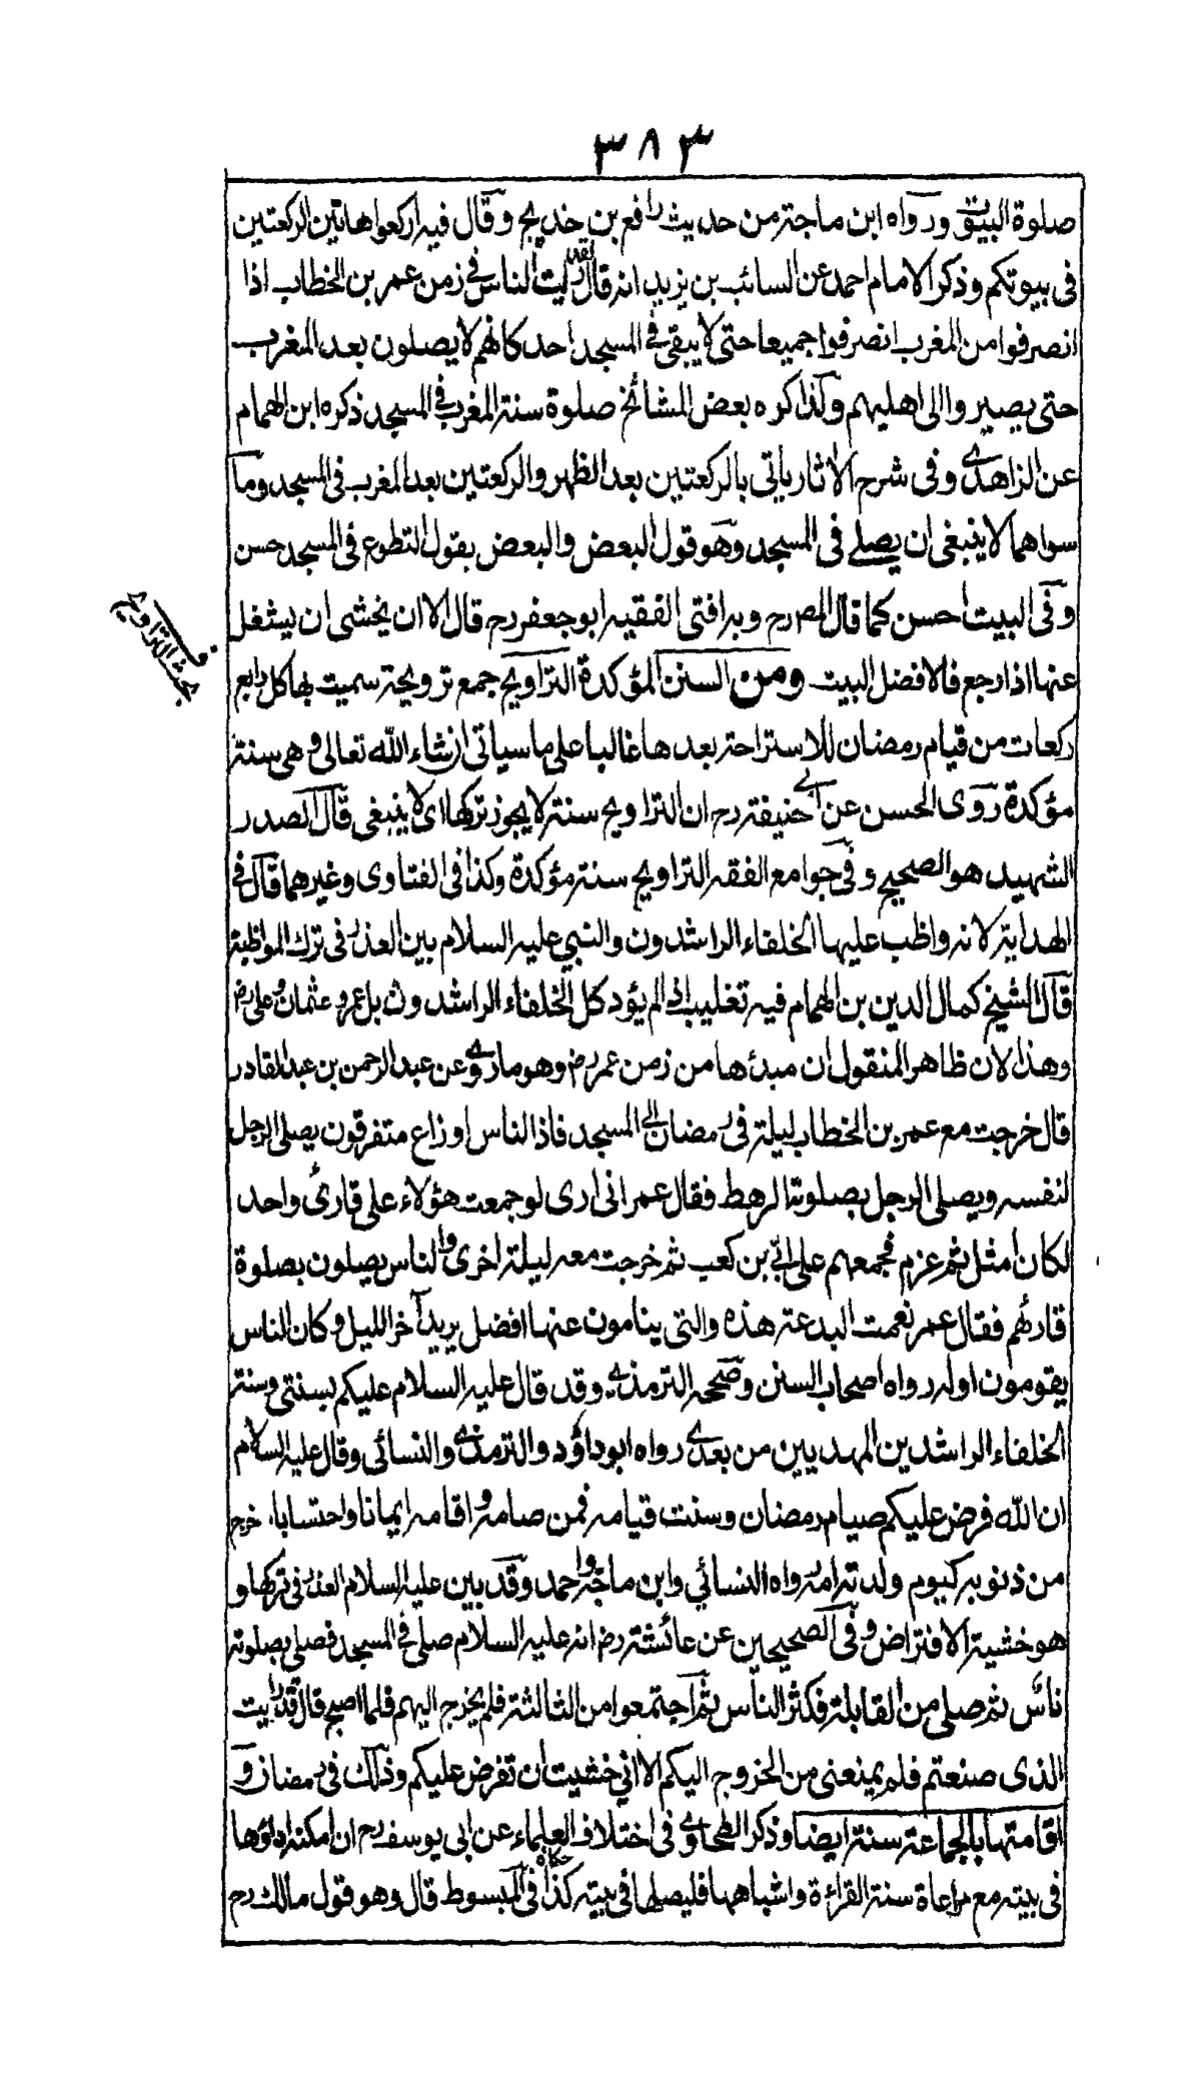 ٣٨٣
صلوة البيوت ورواه ابن ماجة من حديث رافع بن خديج وقال فيه اركعوا هاتين الركعتين
فى بيوتكم وذكر الامام احمد عن السائب بن يزيد انه قال لقد رايت الناس فى زمن عمر بن الخطاب اذا
انصرفوا من المغرب انصرفوا جميعا حتى لا يبقى فى المسجد احد كانهم لا يصلون بعد المغرب
حتى يصيروا الى اهليهم وكذا كره بعض المشائخ صلوة سنة المغرب فى المسجد ذكره ابن الهمام
عن الزاهدى وفى شرح الاثار ياتى بالركعتين بعد الظهر والركعتين بعد المغرب فى المسجد وما
سواهما لا ينبغى ان يصلى فى المسجد وهو قول البعض والبعض يقول التطوع فى المسجد حسن
وفى البيت احسن كما قال المص رح وبه افتى الفقيه ابو جعفر رح قال الا ان يخشى ان يشغل
عنها اذا رجع فالافضل البيت ومن السنن المؤكدة التراويح جمع ترويحة سميت بها كل رابع
بحث التراويح
ركعات من قيام رمضان للاستراحة بعدها غالبا على ما سياتى ان شاء الله تعالى وهى سنة
مؤكدة روى الحسن عن ابى حنيفة رح ان التراويح سنة لا يجوز تركها اى لا ينبغى قال الصدر
الشهيد هو الصحيح وفى جوامع الفقه التراويح سنة مؤكدة وكذا فى الفتاوى وغيرهما قال فى
الهداية لانه واظب عليها الخلفاء الراشدون والنبي عليه السلام بين العذر فى ترك المواظبة
قال الشيخ كمال الدين بن الهمام فيه تغليب اذ لم يؤد كل الخلفاء الراشدون بل عمر وعثمان وعلى رض
وهذا لان ظاهر المنقول ان مبدئها من زمن عمر رض وهو ما روى عن عبد الرحمن بن عبد القادر
قال خرجت مع عمر بن الخطاب ليلة فى رمضان الى المسجد فاذا الناس اوزاع متفرقون يصلى الرجل
لنفسه ويصلى الرجل بصلوته الرهط فقال عمر انى ارى لو جمعت هؤلاء على قارئ واحد
لكان امثل ثم عزم فجمعهم على ابي بن كعب ثم خرجت معه ليلة اخرى والناس يصلون بصلوة
قارئهم فقال عمر نعمت البدعة هذه والتى ينامون عنها افضل يريد آخر الليل وكان الناس
يقومون اوله رواه اصحاب السنن وصححه الترمذى وقد قال عليه السلام عليكم بسنتى وسنة
الخلفاء الراشدين المهديين من بعدى رواه ابو داؤد والترمذى والنسائى وقال عليه السلام
ان الله فرض عليكم صيام رمضان وسنت قيامه فمن صامه واقامه ايمانا واحتسابا خرج
من ذنوبه كيوم ولدته امه رواه النسائي وابن ماجة واحمد وقد بين عليه السلام العذر فى تركها و
هو خشية الافتراض وفى الصحيحين عن عائشة رض انه عليه السلام صلى فى المسجد فصلى بصلوته
ناس ثم صلى من القابلة فكثر الناس ثم اجتمعوا من الثالثة فلم يخرج اليهم فلما اصبح قال قد رايت
الذى صنعتم فلم يمنعنى من الخروج اليكم الا انى خشيت ان تفرض عليكم وذلك فى رمضان و
اقامتها بالجماعة سنة ايضا وذكر الطحاوى فى اختلاف العلماء عن ابى يوسف رح ان امكنه اداؤها
فى بيته مع مراعاة سنة القراءة واشباهها فليصلها فى بيته كذا حكاه فى المبسوط قال وهو قول مالك رح